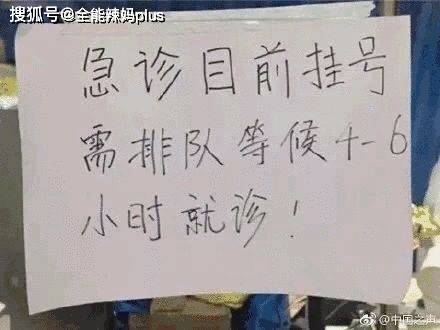 搜狐号@全能辣妈plus
急诊目前挂号
需排队等候4-6
小时就诊！
@中国之声